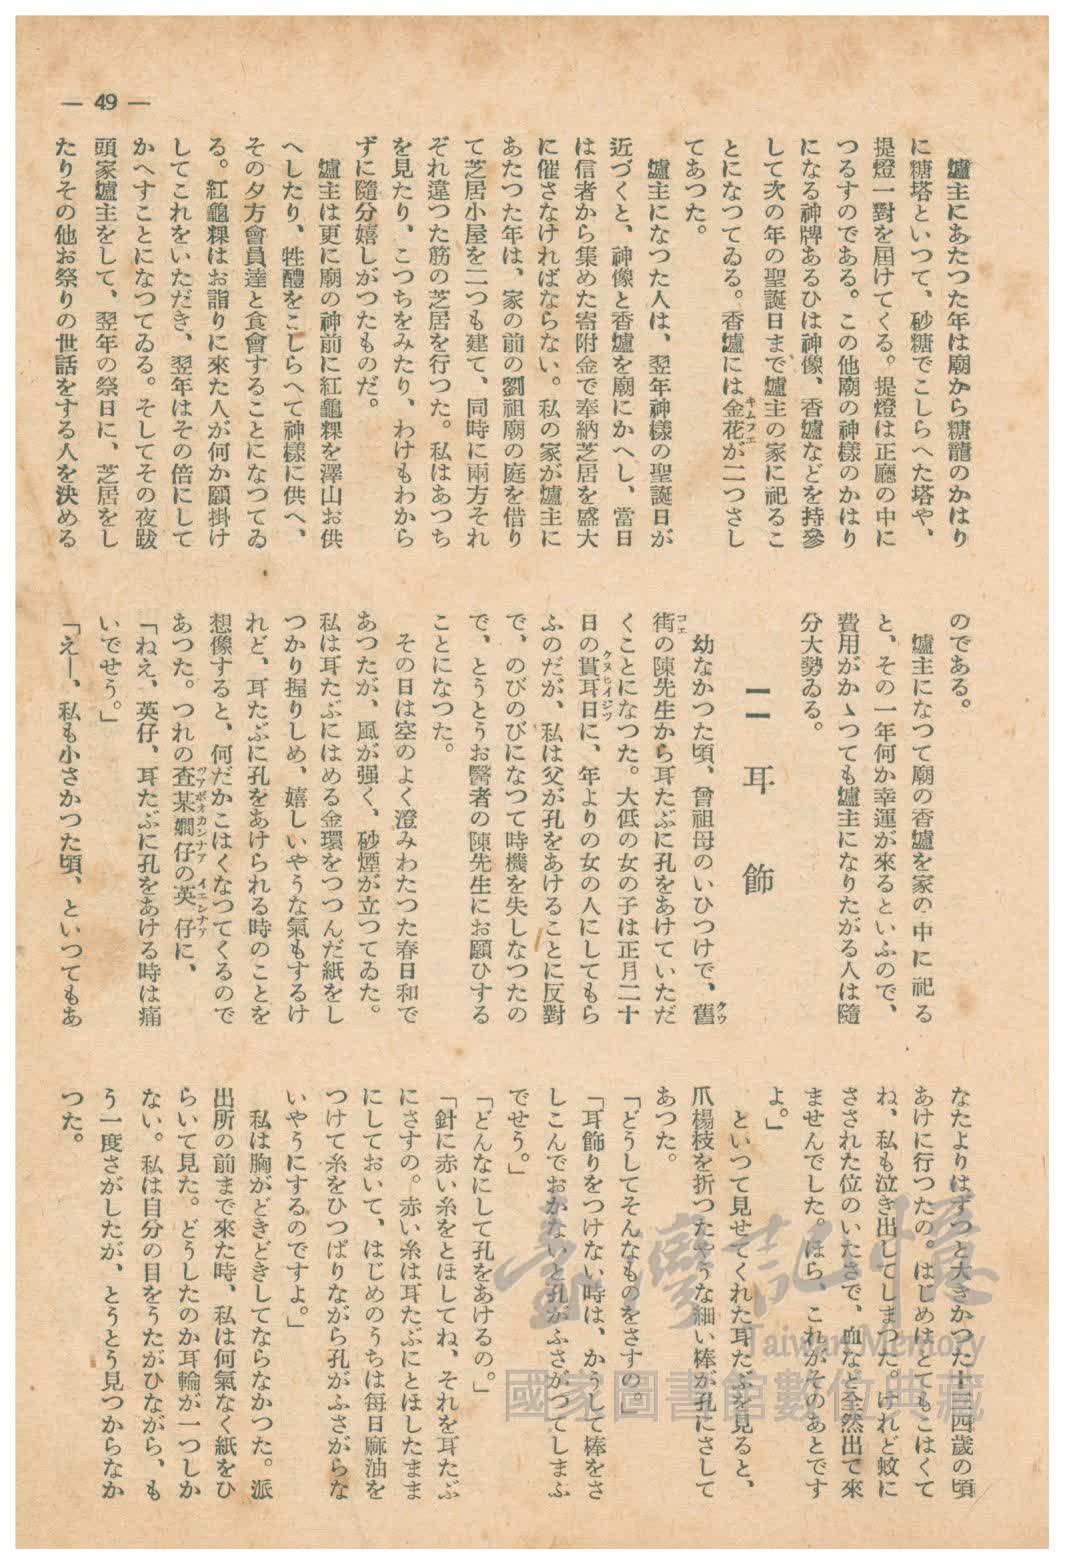 — 49 —
爐主にあたつた年は廟から糖龍のかはり
に糖塔といつて、砂糖でこしらへた塔や、
提燈一對を屆けてくる。提燈は正廳の中に
つるすのである。この他廟の神樣のかはり
になる神牌あるひは神像、香爐などを持參
して次の年の聖誕日まで爐主の家に祀るこ
とになつてゐる。香爐には金花が二つさし
キムフエ
てあつた。
爐主になつた人は、翌年神樣の聖誕日が
近づくと、神像と香爐を廟にかへし、當日
は信者から集めた寄附金で奉納芝居を盛大
に催さなければならない。私の家が爐主に
あたつた年は、家の前の劉祖廟の庭を借り
て芝居小屋を二つも建て、同時に兩方それ
ぞれ違つた筋の芝居を行つた。私はあつち
を見たり、こつちをみたり、わけもわから
ずに隨分嬉しがつたものだ。
爐主は更に廟の神前に紅龜粿を澤山お供
へしたり、牲醴をこしらへて神樣に供へ、
その夕方會員達と食會することになつてゐ
る。紅龜粿はお詣りに來た人が何か願掛け
してこれをいただき、翌年はその倍にして
かへすことになつてゐる。そしてその夜跋
頭家爐主をして、翌年の祭日に、芝居をし
たりその他お祭りの世話をする人を決める
のである。
爐主になつて廟の香爐を家の中に祀る
と、その一年何か幸運が來るといふので、
費用がかゝつても爐主になりたがる人は隨
分大勢ゐる。
二 耳飾
幼なかつた頃、曾祖母のいひつけで、舊
クウ
街の陳先生から耳たぶに孔をあけていただ
コエ
くことになつた。大低の女の子は正月二十
日の貫耳日に、年よりの女の人にしてもら
クヌヒイジツ
ふのだが、私は父が孔をあけることに反對
で、のびのびになつて時機を失しなつたの
で、とうとうお醫者の陳先生にお願ひする
ことになつた。
その日は空のよく澄みわたつた春日和で
あつたが、風が强く、砂煙が立つてゐた。
私は耳たぶにはめる金環をつつんだ紙をし
つかり握りしめ、嬉しいやうな氣もするけ
れど、耳たぶに孔をあけられる時のことを
想像すると、何だかこはくなつてくるので
あつた。つれの査某嫺仔の英仔に、
ツアボオカンナア イエンナア
「ねえ、英仔、耳たぶに孔をあける時は痛
いでせう。」
「えー、私も小さかつた頃、といつてもあ
なたよりはずつと大きかつた十三四歲の頃
あけに行つたの。はじめはとてもこはくて
ね、私も泣き出してしまつた。けれど蚊に
さされた位のいたさで、血など全然出て來
ませんでした。ほら、これがそのあとです
よ。」
といつて見せてくれた耳たぶを見ると、
爪楊枝を折つたやうな細い棒が孔にさして
あつた。
「どうしてそんなものをさすの。」
「耳飾りをつけない時は、かうして棒をさ
しこんでおかないと孔がふさがつてしまふ
でせう。」
「どんなにして孔をあけるの。」
「針に赤い糸をとほしてね、それを耳たぶ
にさすの。赤い糸は耳たぶにとほしたまま
にしておいて、はじめのうちは每日麻油を
つけて糸をひつぱりながら孔がふさがらな
いやうにするのですよ。」
私は胸がどきどきしてならなかつた。派
出所の前まで來た時、私は何氣なく紙をひ
らいて見た。どうしたのか耳輪が一つしか
ない。私は自分の目をうたがひながら、も
う一度さがしたが、とうとう見つからなか
つた。
臺灣記憶
Taiwan Memory
國家圖書館數位典藏